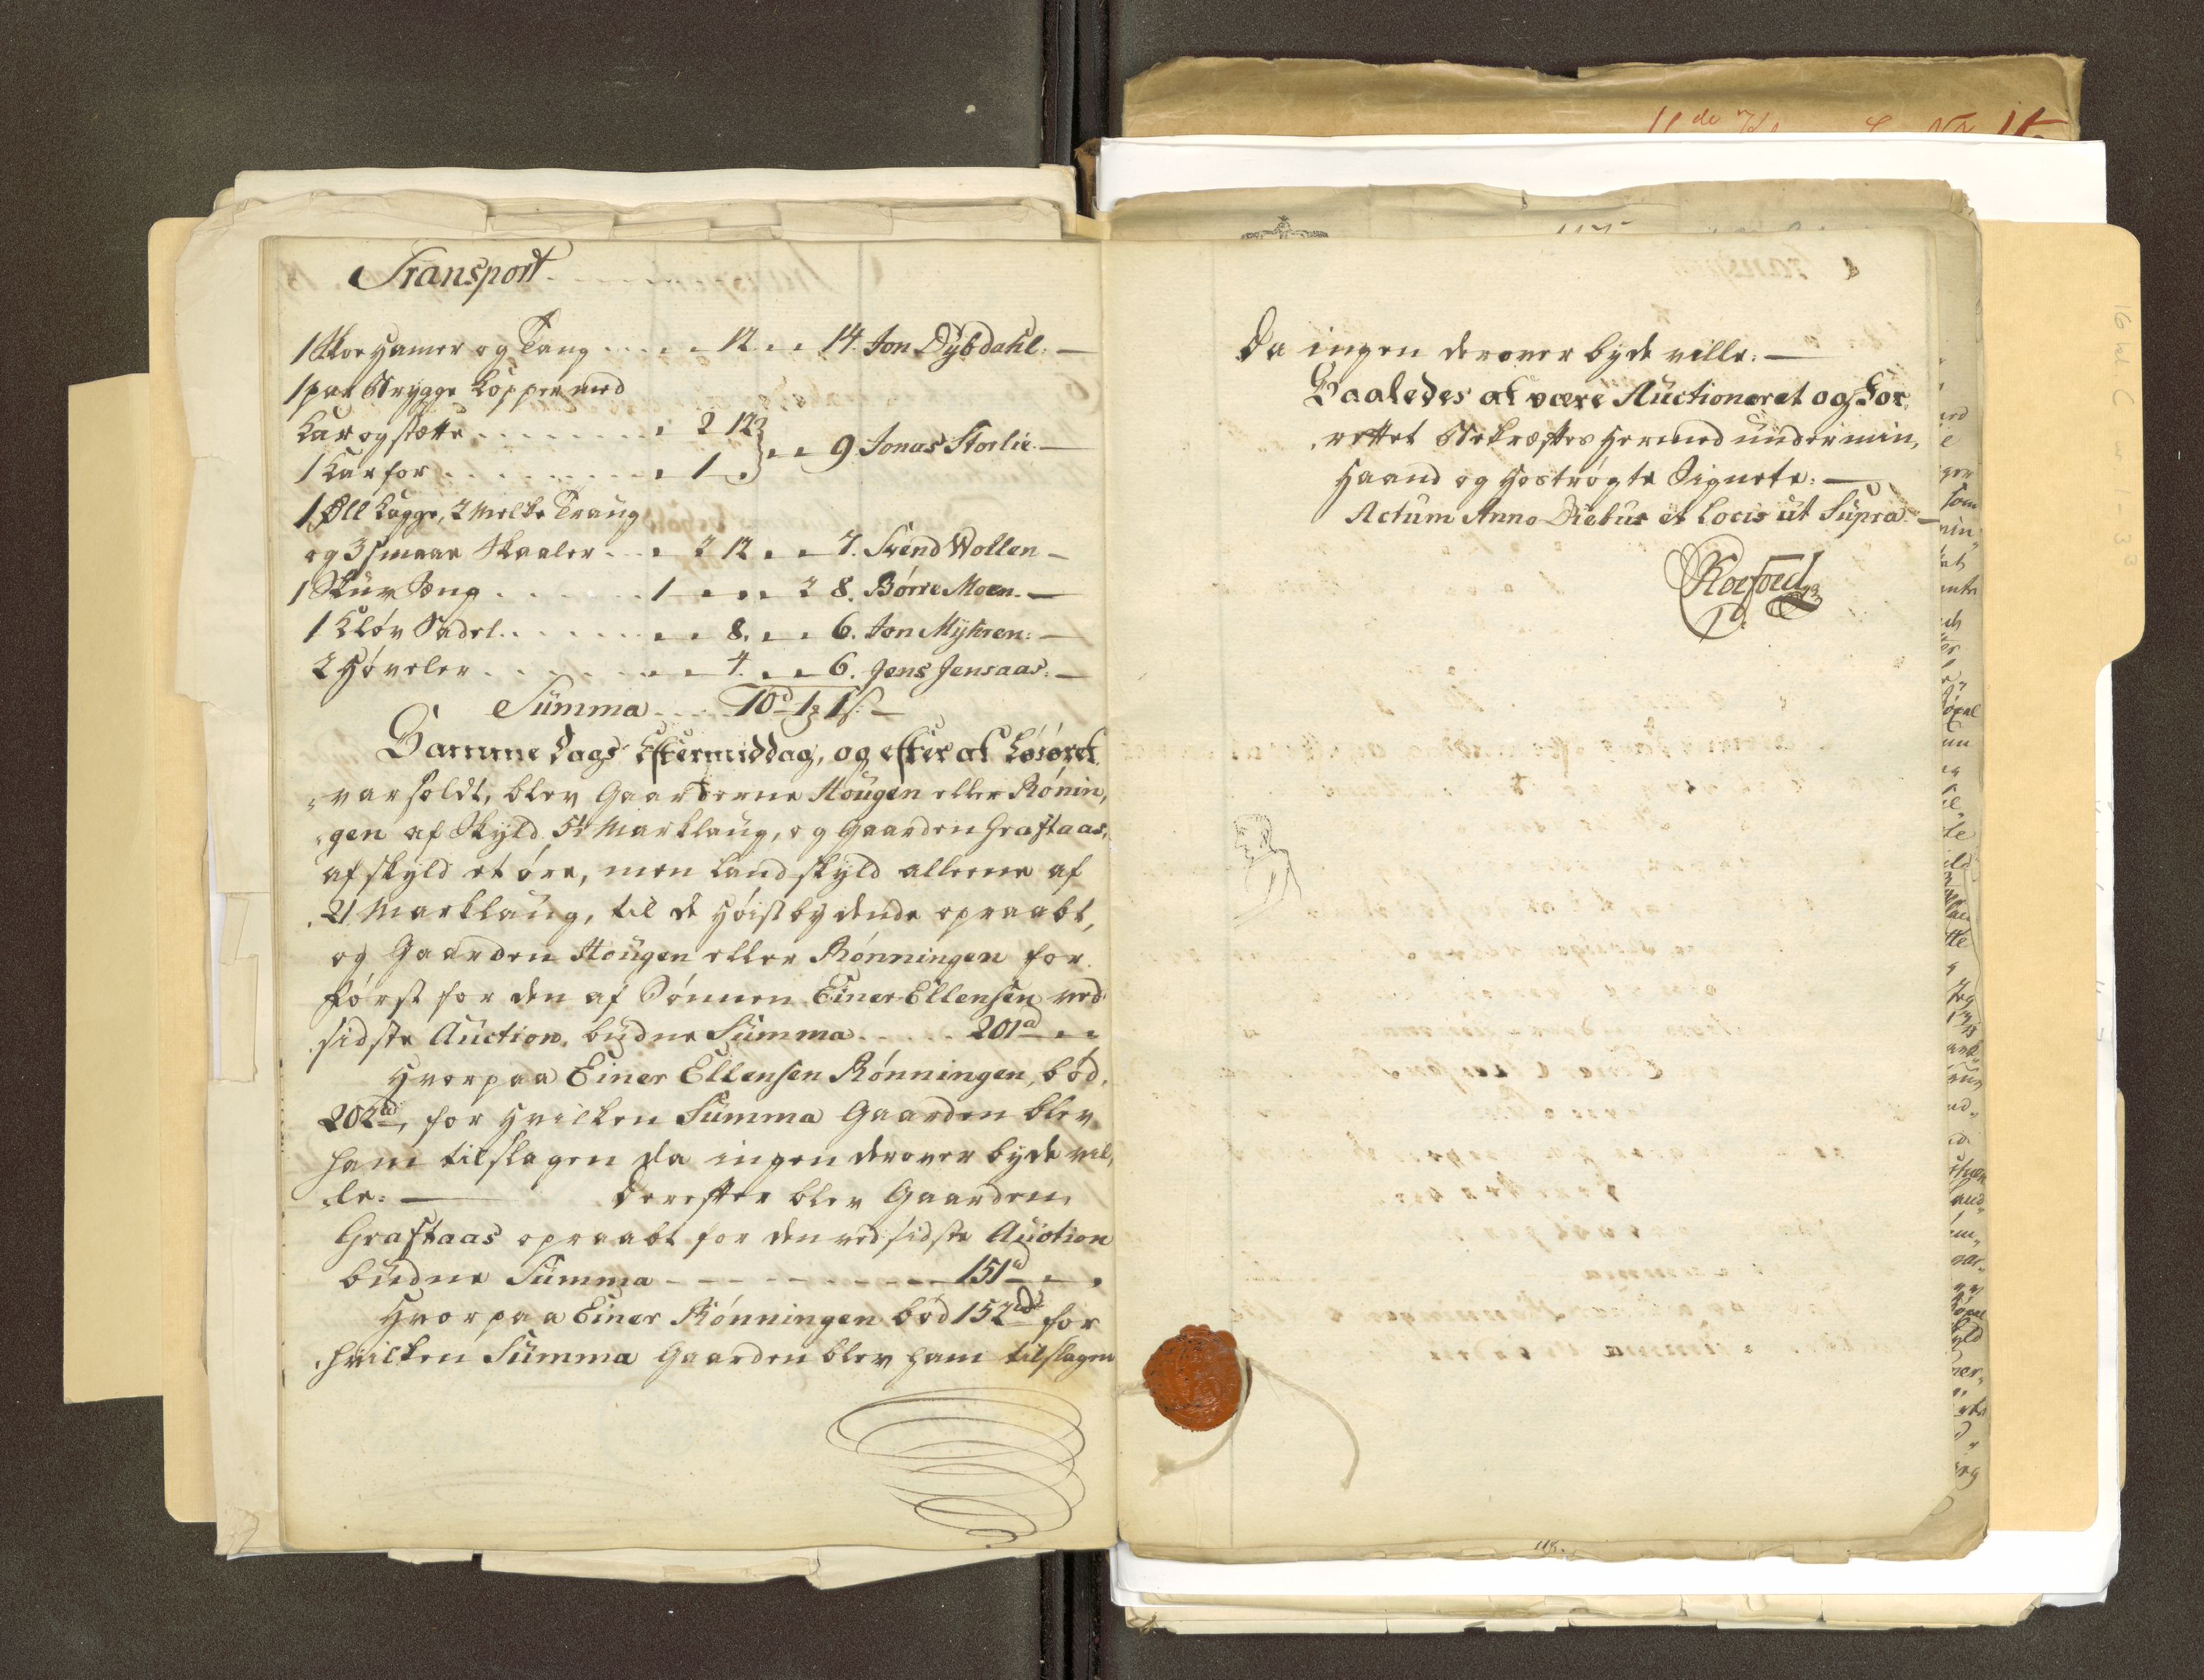 Transport
1 Skoe Hamer og Tang . . . „ „ 12 „ „ 14. Jon Dÿbdahl. —
1 par Brygge Kopper med
Kar og stette . . . . . . . . „ 2 12
1 Karfor . . . . . . . . „ 1 „ } „ „ 9. Jonas Storlie. —
1 Øll Kagge, 2 Melke Traug
og 3 smaae Skaaler . . . „ 2 12 „ „ 7. Svend Wollen —
1 Skür . . . . . . . 1 „ „ „ 2 8. Börre Moen. —
1 Kløv Sadel . . . . . . „ „ 8. „ „ 6. Jon Mÿhren: —
2 Høveler . . . . . . „ „ 4. „ „ 6. Jens Jensaas: —
Summa . . . 10d 1 1 s: —
Samme Dags Eftermiddag, og efter at Løsøret
var soldt, blev Gaarderne Hougen eller Rønin,
gen af Skyld 5½ Marklaug, og Gaarden Graftaas,
af skyld et øre, men Landskyld alleene af
21 Marklaug, til de Høistbydende opraabt,
og Gaarden Hougen eller Rønningen for
først for den af Sønnen Einer Ellensen ved
sidste Auction budne Summa . . . . . 201d „ „
Hvorpaa Einer Ellensen Rønningen, bød,
202d, for hvilken Summa Gaarden blev
ham tilslagen da ingen derover byde vil,
de: — Derefter blev Gaarden
Graftaas opraabt for den ved sidste Auction
budne Summa - - - - - - - - 151d „ „
Hvorpaa Einer Rønningen bød 152d for
hvilken Summa Gaarden blev ham tilslagen
da ingen derover byde ville: —
Saaledes at være Auctioneret og For,
rettet Bekræftes Hermed under min,
Haand og Hostrøgte Signete: —
Actum Anno Diebus et Locis ut Supra —
Koefoed
118.